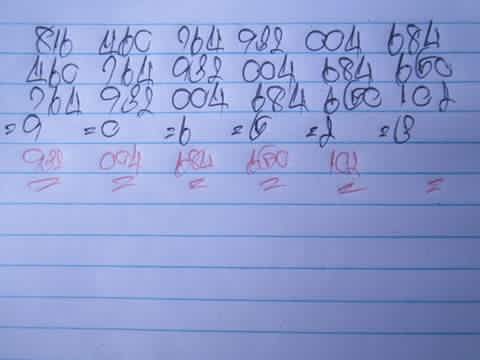 816 460 764 932 004 684
460 764 932 004 684 660
764 932 004 684 660 102
=9 =0 =6 =6 =2 =3
932 004 684 660 102
= = = = = =